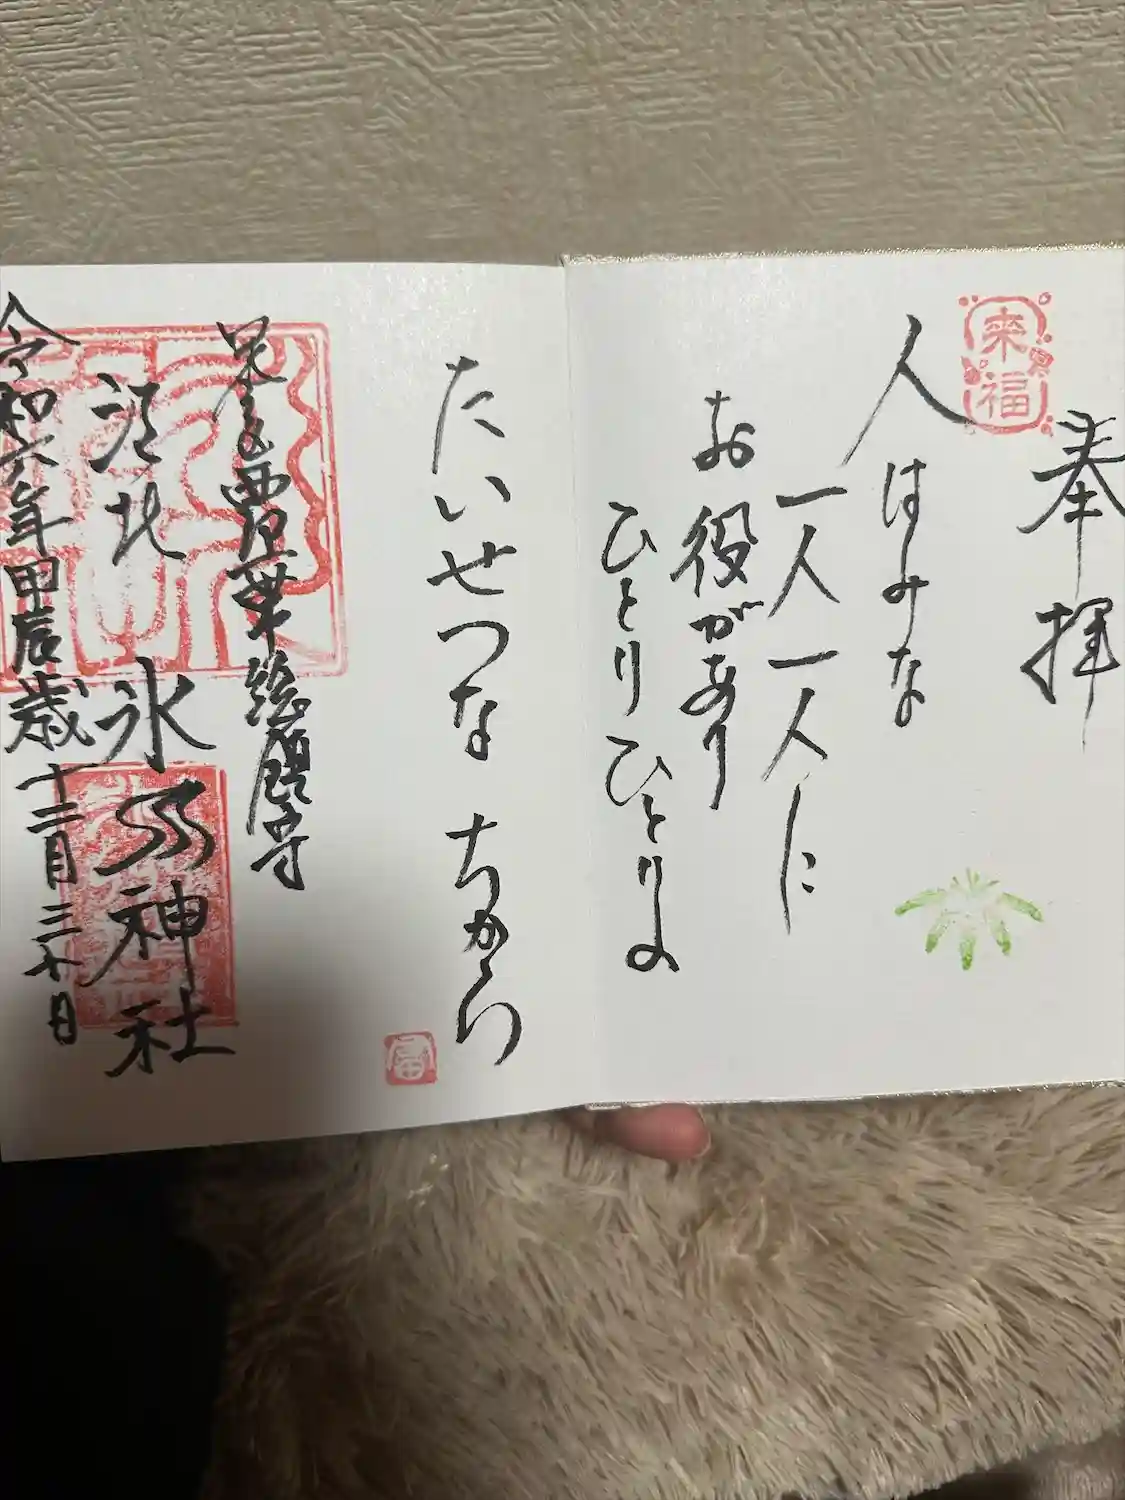 奉拝
来福
人はみな
一人一人に
お役があり
ひとりひとりの
たいせつな ちから
足立区西屋華総鎮守
江北 氷川神社
令和六年甲辰歳十二月三十日